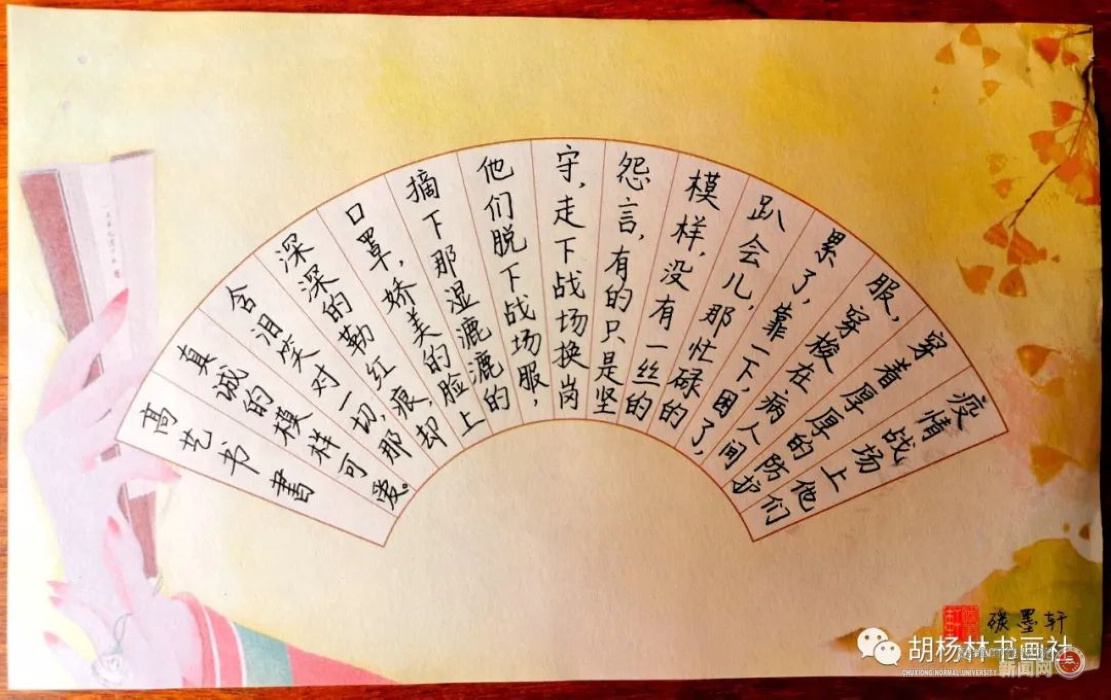 疫情战场上他们
穿着厚厚的防护
服，穿梭在病人间
累了，靠一下，困了，
趴会儿，那忙碌的
模样，没有一丝的
怨言，有的只是坚
守，走下战场换岗
他们脱下战场服，
摘下那湿漉漉的
口罩，娇美的脸上
深深的勒红痕，却
含泪笑对一切，那
真诚的模样可爱。
高艺书書
墨轩
胡杨林书画社
新闻网
CHUXIONG NORMAL UNIVERSITY